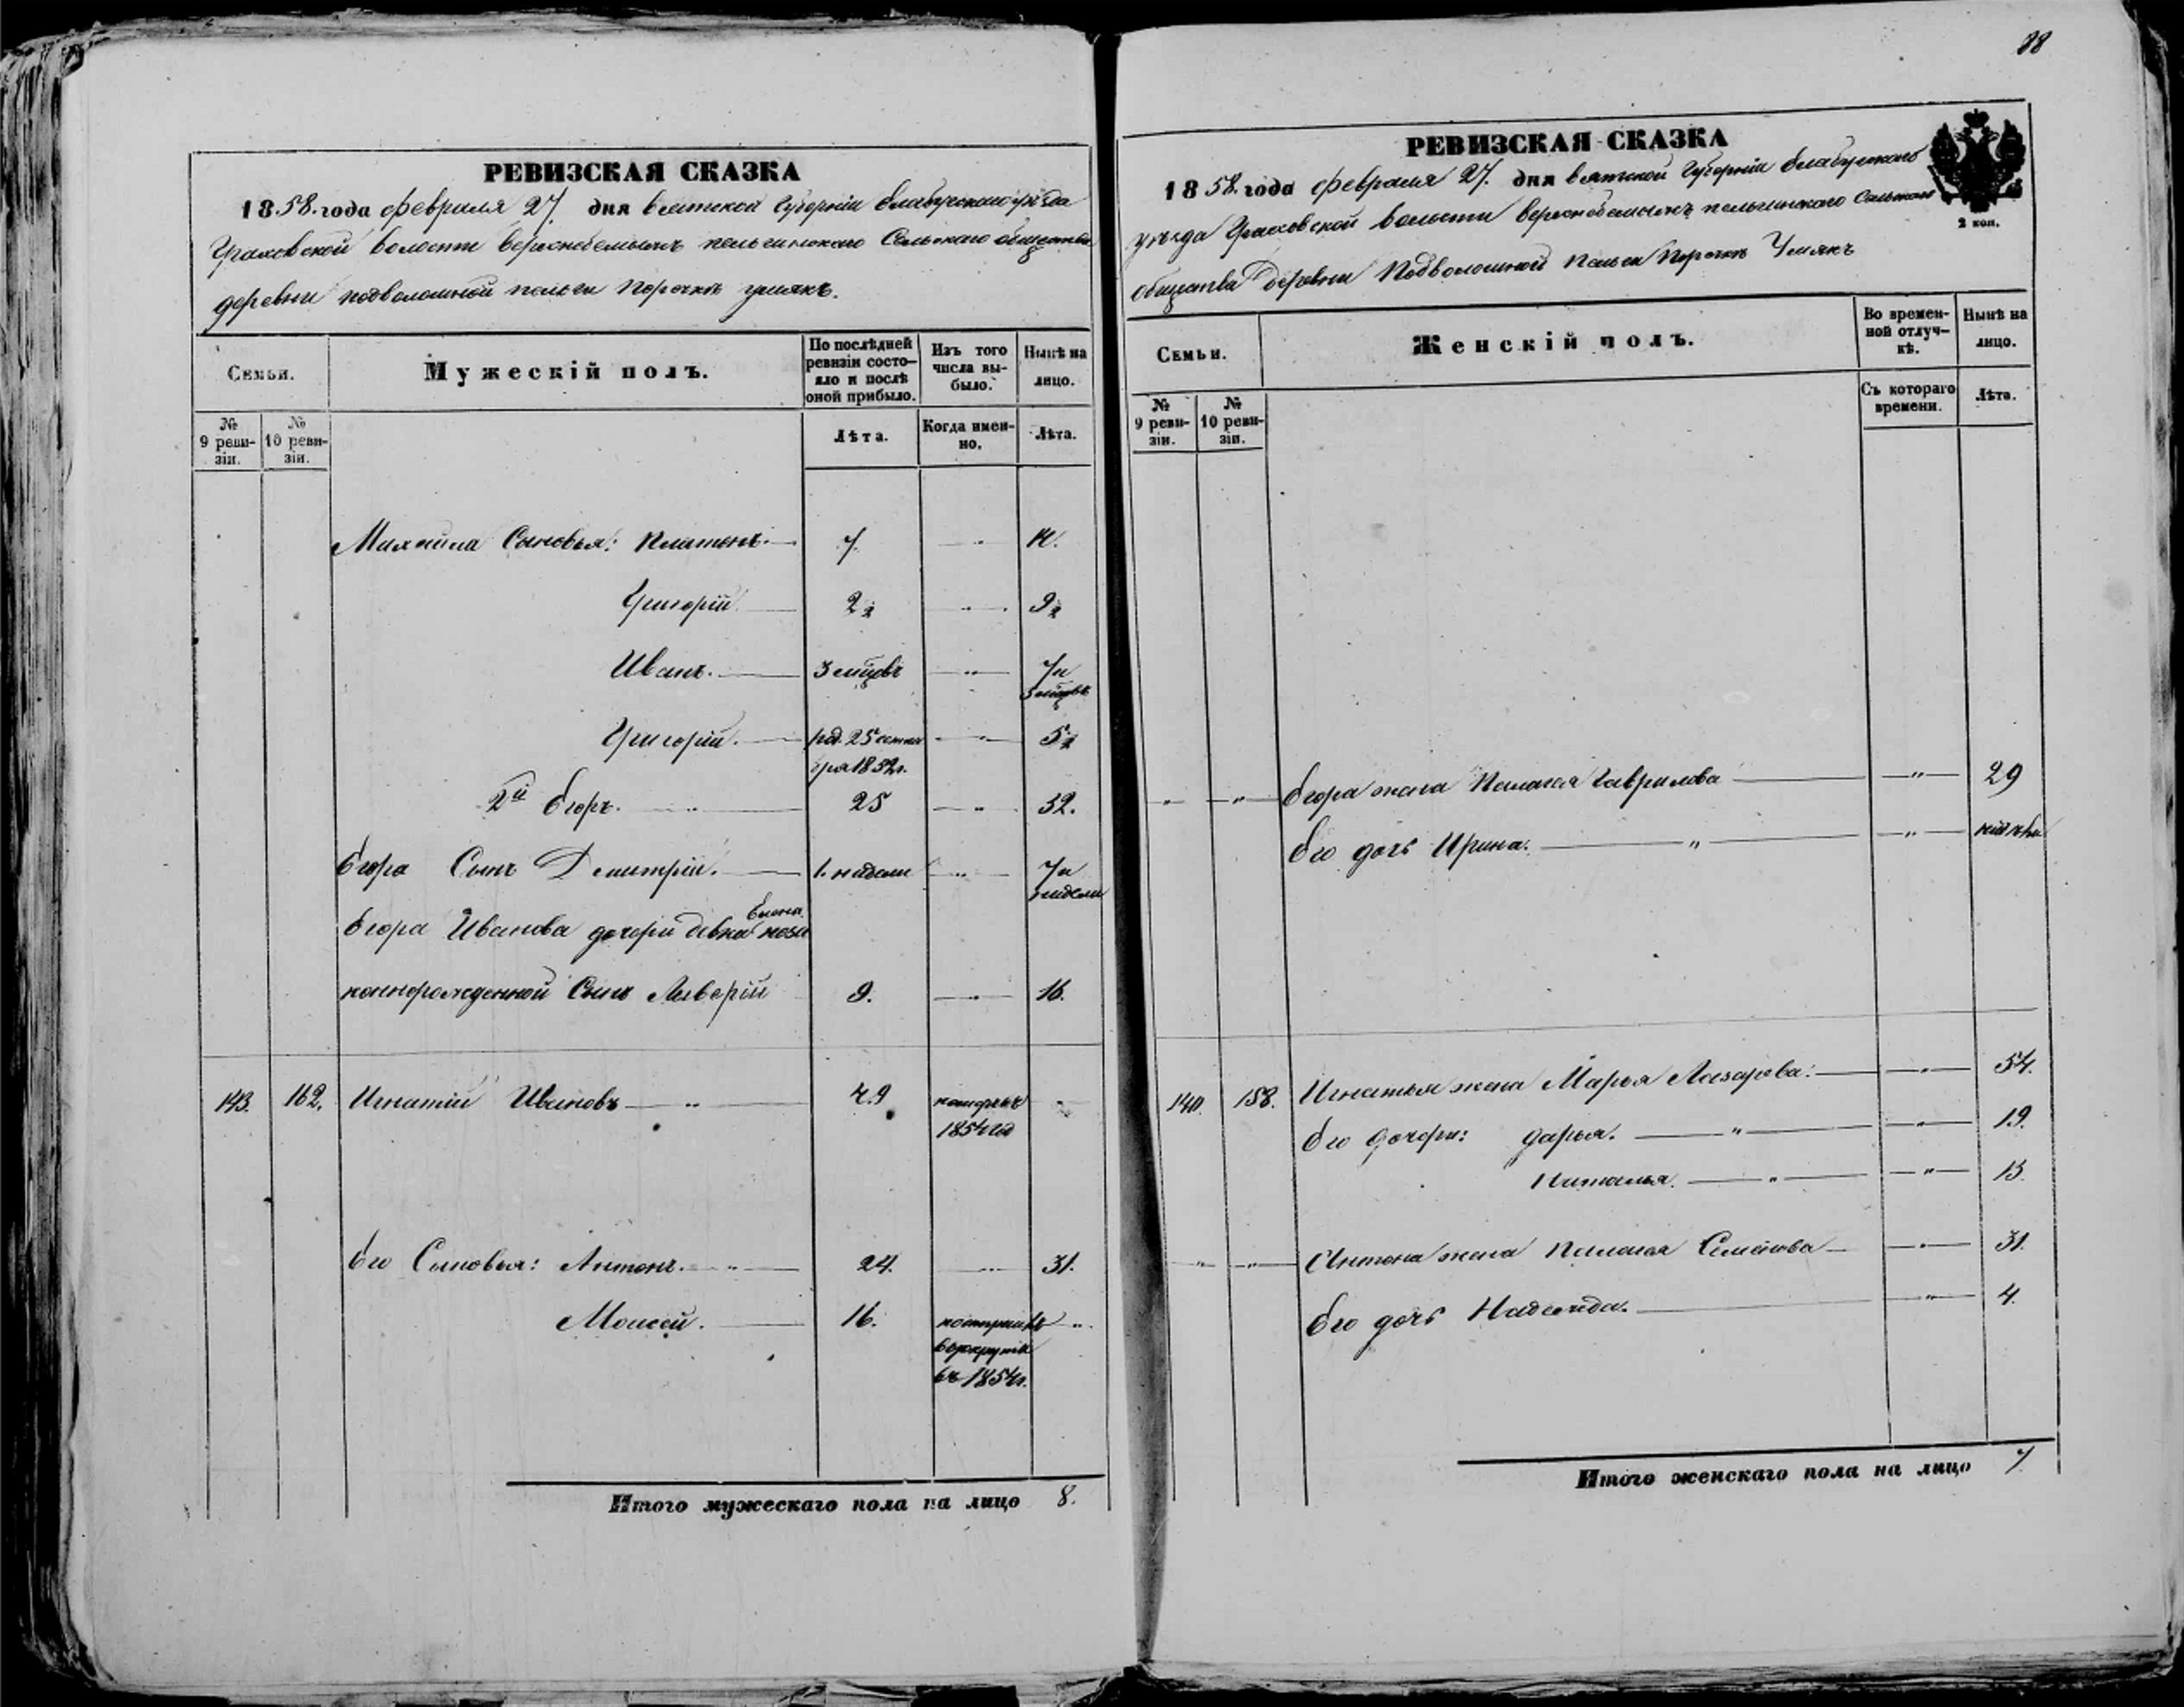 88
РЕВИЗСКАЯ СКАЗКА
1858. года февраля 27. дня вятской Губерніи Елабужскаго уѣзда
Граховской волости верхнебемыжъ пельгинскаго Сельскаго общества
деревни подволошной пельги порочкъ умякъ.
Семьи.
Мужескій полъ.
По послѣдней ревизіи состояло и послѣ оной прибыло.
Изъ того числа выбыло.
Нынѣ на лицо.
№ 9 ревизіи.
№ 10 ревизіи.
Лѣта.
Когда именно.
Лѣта.
Михаила Сыновья: Платонъ. 7. 14.
Григорій 2½ 9½
Иванъ. 3 мцовъ 7 и 3 мцовъ
Григорій. род. 25 сентября 1852 г. 5½
2й Егоръ. 25 32.
Егора Сынъ Дмитрій. 1. недели 7 и недели
Егора Иванова дочери девки Елены неза
коннорожденной Сынъ Аверій 9. 16.
143. 162. Игнатій Ивановъ 49 померъ въ 1854 год
Его Сыновья: Антонъ. 24. 31.
Моисей. 16. поступилъ в рекруты въ 1854 г.
Итого мужескаго пола на лицо 8.
РЕВИЗСКАЯ СКАЗКА
1858. года февраля 27. дня вятской Губерніи Елабужскаго
уѣзда Граховской волости верхнебемыжъ пельгинскаго Сельскаго
общества Деревни Подволошной Пельги Порочкъ Умякъ
2 коп.
Семьи.
Женскій полъ.
Во временной отлучкѣ.
Нынѣ на лицо.
№ 9 ревизіи.
№ 10 ревизіи.
Съ котораго времени.
Лѣта.
Егора жена Пелагея Гаврилова 29
Его дочь Ирина.
140. 158. Игнатья жена Марья Лазарева: 54.
Его дочери: Дарья. 19.
Наталья. 13.
Антона жена Пелагея Семенова 31.
Его дочь Надежда. 4.
Итого женскаго пола на лицо 7.